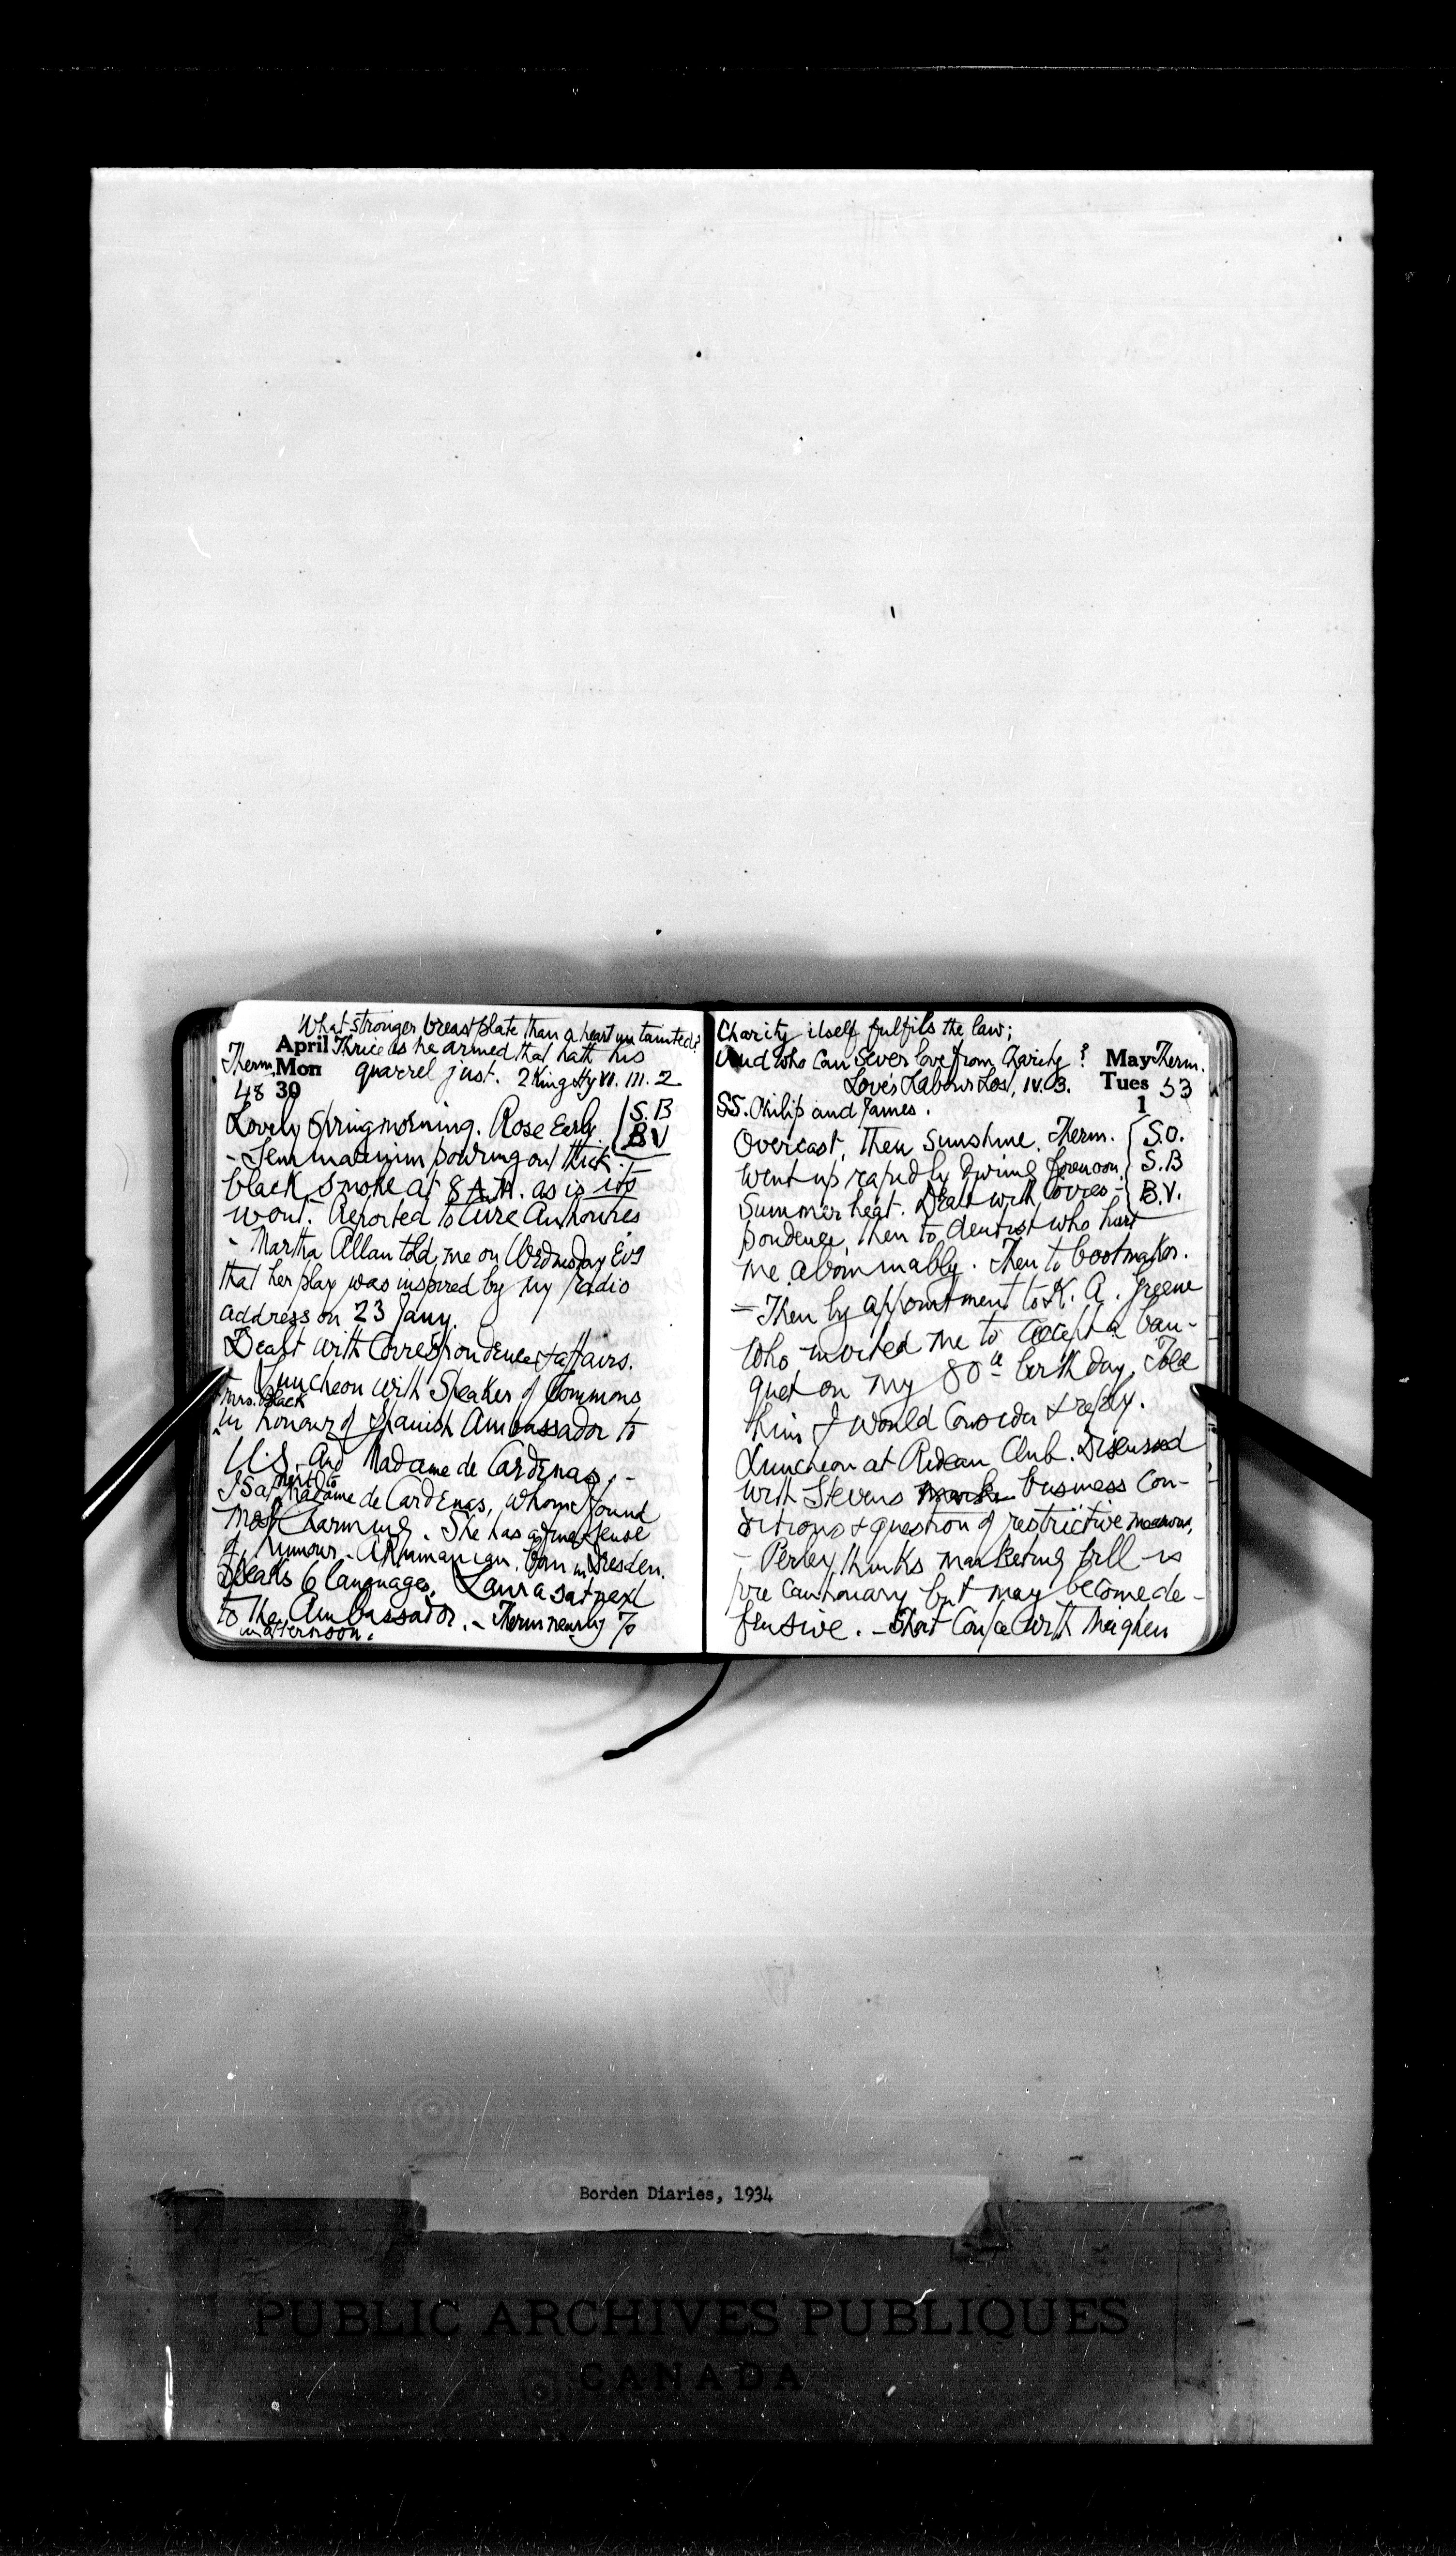 What stronger breastplate than a heart untainted?
April Thrice is he armed that hath his
Therm. Mon quarrel just. 2 King Hy VI. III. 2
48 30
Lovely Spring morning. Rose Early S.B
B V
- pouring out thick
black smoke at 8 A.M. as is its
wont. Reported to Authorities
- Martha Allan told me on Wednesday Evg
that her play was inspired by my radio
address on 23 Jany.
Dealt with Correspondence & affairs.
Luncheon with Speaker of Commons
& Mrs. Black
in honour of Spanish Ambassador to
U.S. and Madame de Cardenas. -
I Sat next to Madame de Cardenas, whom I found
most charming. She has a fine sense
of humour. A Rumanian. Born in Dresden.
Speaks 6 languages. Laura sat next
to the Ambassador. - Therm nearly 70
in afternoon.
Charity itself fulfils the law;
And who can sever love from Charity? May Therm.
Love's Labours Los, IV. 3. Tues 53
1
SS. Philip and James.
Overcast, then Sunshine. Therm. S.O.
went up rapidly during forenoon. S.B
Summer heat. Dealt with Corres- B.V.
pondence, then to dentist who hurt
me abominably. Then to bootmaker.
- Then by appointment to K. A. Greene
who invited me to accept a ban-
quet on my 80th birthday. Told
him I would consider & reply.
Luncheon at Rideau Club. Discussed
with Stevens business con-
ditions & question of restrictive
- Perley thinks marketing bill is
precautionary but may become de-
fensive. - Short Confce with Meighen
Borden Diaries, 1934
PUBLIC ARCHIVES PUBLIQUES
CANADA